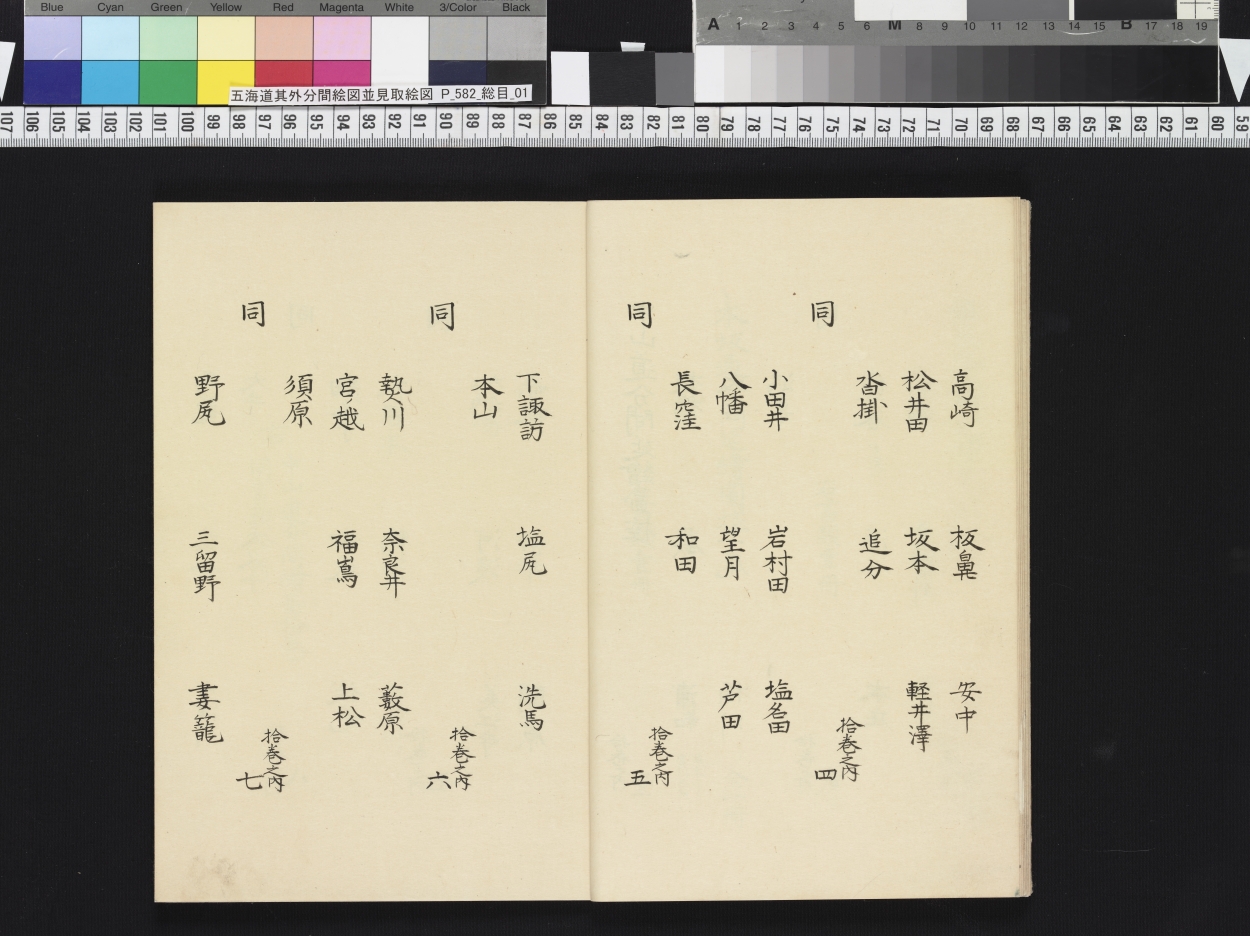 Blue Cyan Green Yellow Red Magenta White 3/Color Black
A 1 2 3 4 5 6 M 8 9 10 11 12 13 14 15 B 17 18 19
五海道其外分間絵図並見取絵図 P_582_総目_01
107 106 105 104 103 102 101 100 99 98 97 96 95 94 93 92 91 90 89 88 87 86 85 84 83 82 81 80 79 78 77 76 75 74 73 72 71 70 69 68 67 66 65 64 63 62 61 60 59
高崎 板鼻 安中
松井田 坂本 軽井澤
沓掛 追分
同 拾巻之内 四
小田井 岩村田 塩名田
八幡 望月 芦田
長窪 和田
同 拾巻之内 五
下諏訪 塩尻 洗馬
本山
同 拾巻之内 六
贄川 奈良井 藪原
宮ノ越 福嶌 上松
須原
同 拾巻之内 七
野尻 三留野 妻籠